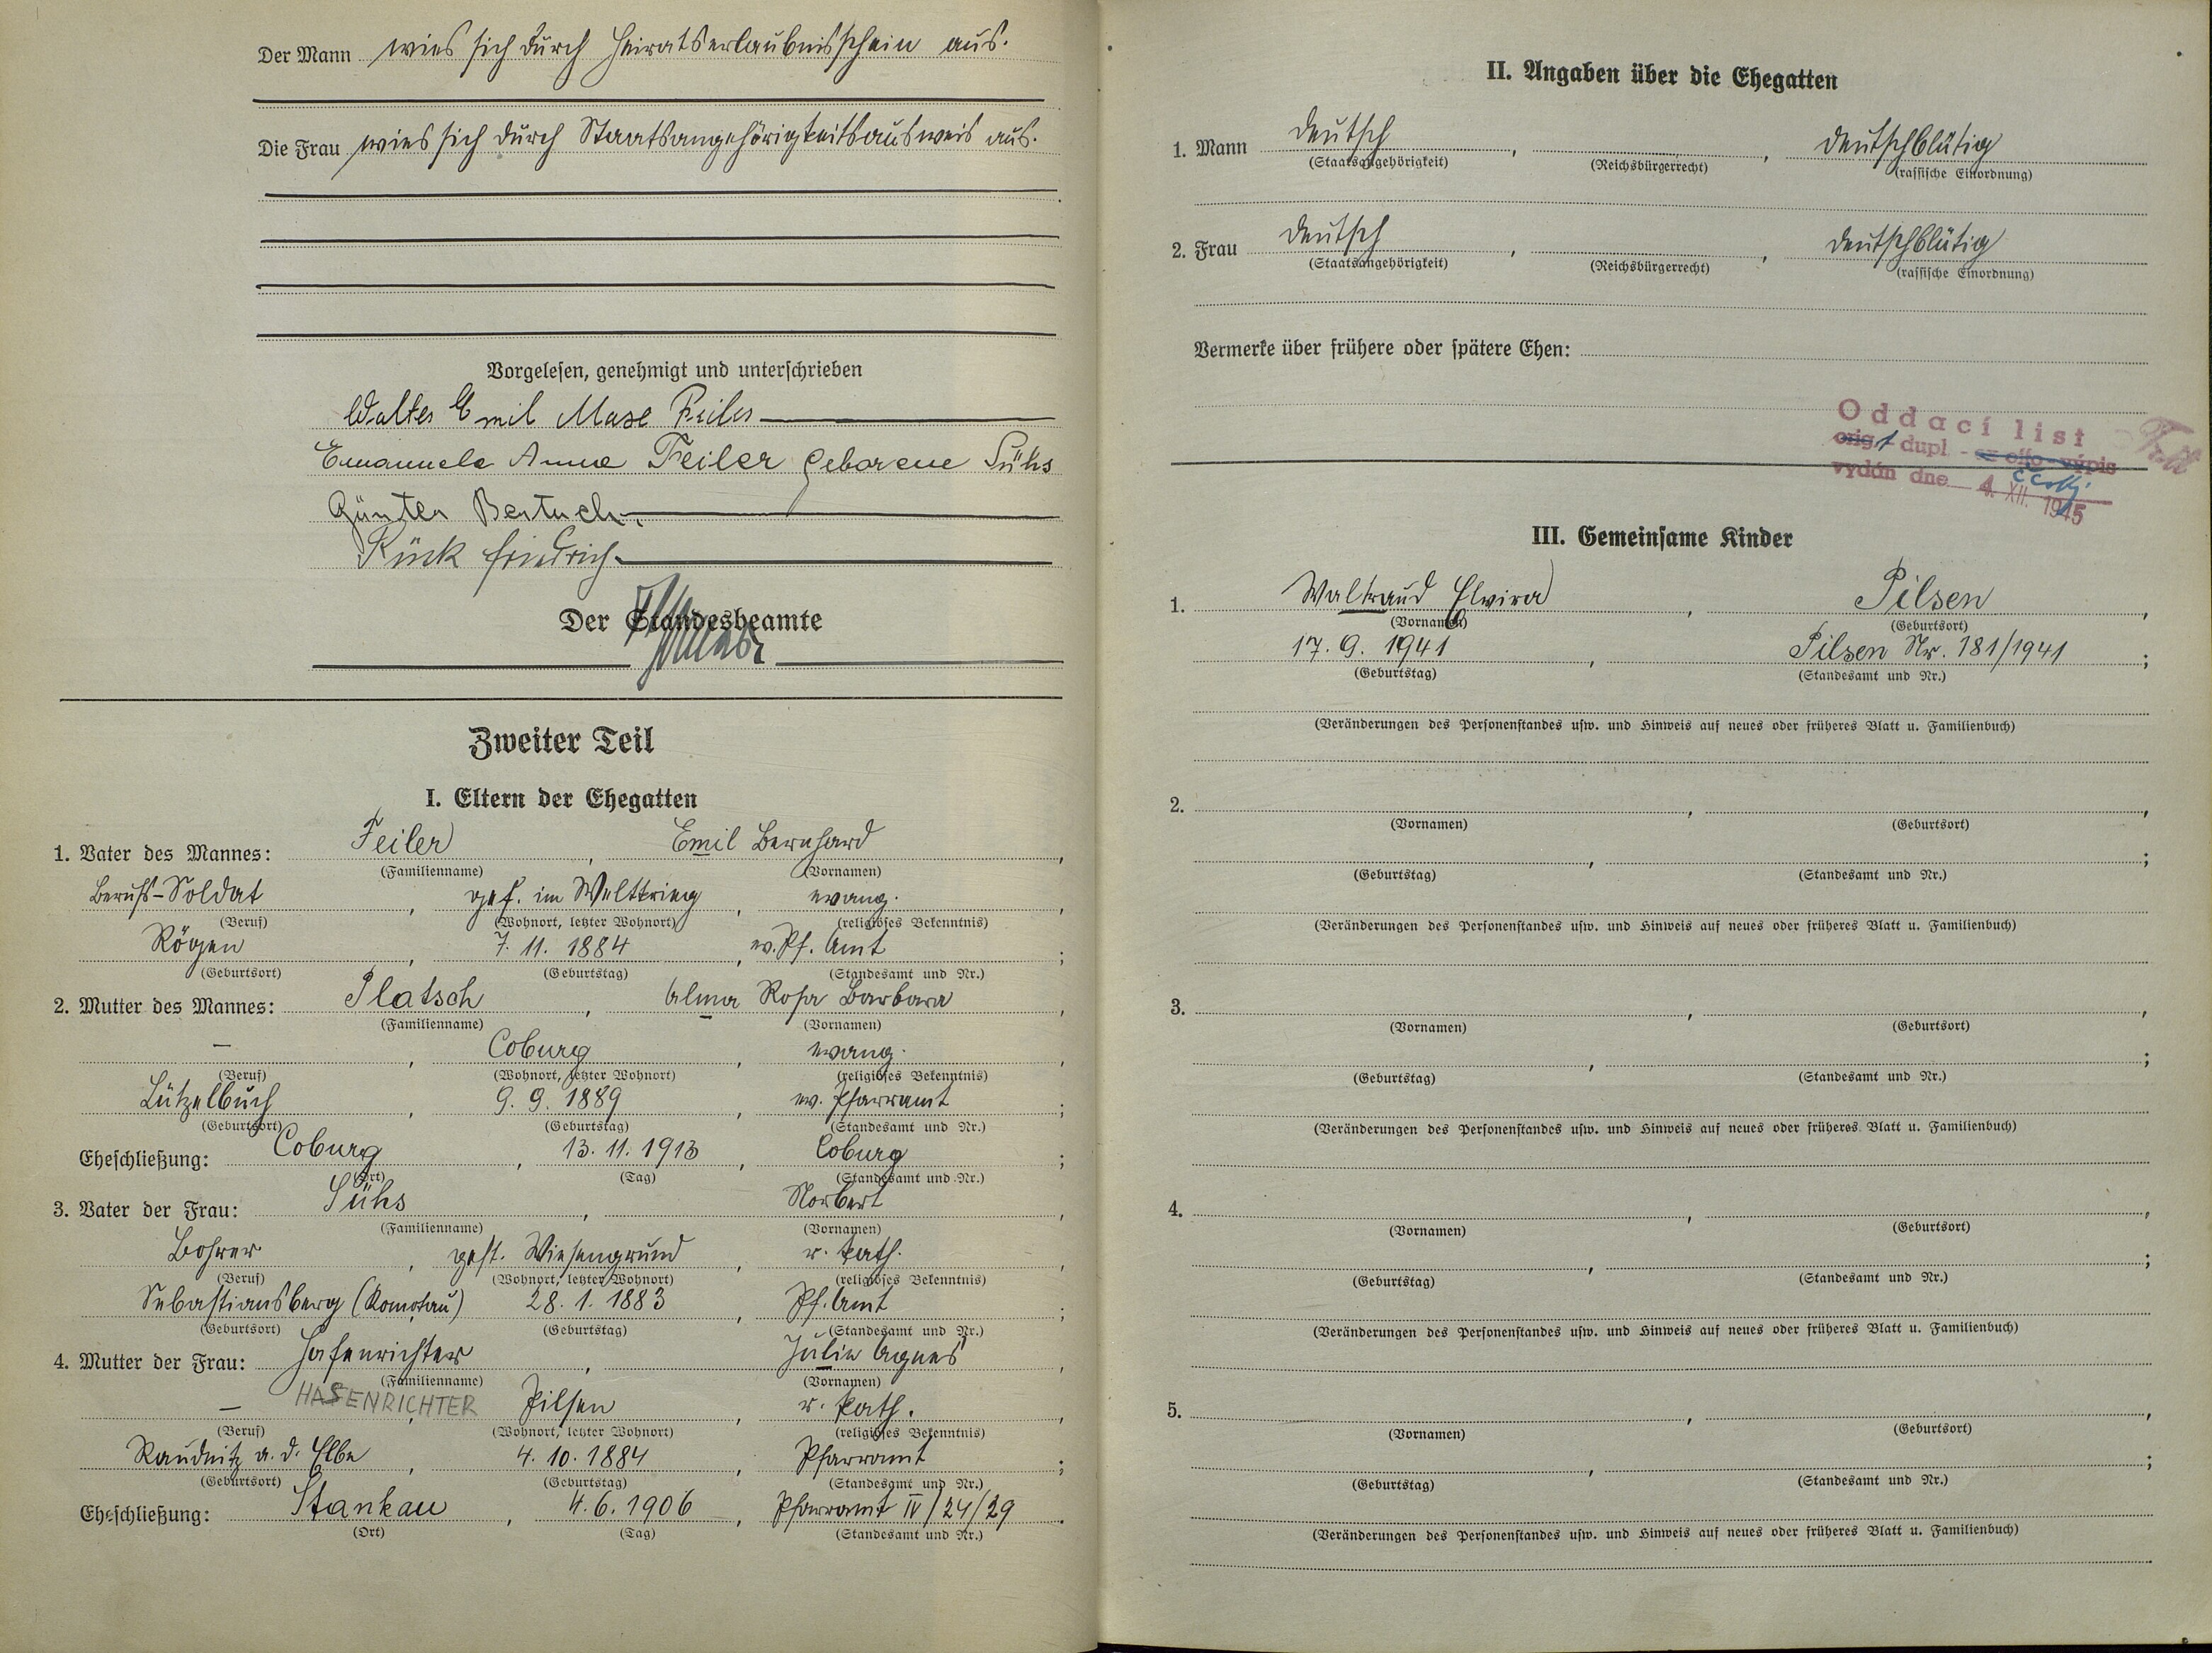 Der Mann wies sich durch Heiratserlaubnisschein aus.
Die Frau wies sich durch Staatsangehörigkeitsausweis aus.
Vorgelesen, genehmigt und unterschrieben
Walter Emil Max Feiler
Emanuela Anna Feiler geborene Sühs
Günter Bertuch.
Rück Friedrich
Der Standesbeamte
Zweiter Teil
I. Eltern der Ehegatten
1. Vater des Mannes: Feiler, Emil Bernhard,
(Familienname) (Vornamen)
Berufs-Soldat, gef. im Weltkrieg, evang.,
(Beruf) (Wohnort, letzter Wohnort) (religiöses Bekenntnis)
Rögen, 7. 11. 1884, ev. Pf. Amt;
(Geburtsort) (Geburtstag) (Standesamt und Nr.)
2. Mutter des Mannes: Platsch, Alma Rosa Barbara,
(Familienname) (Vornamen)
—, Coburg, evang.,
(Beruf) (Wohnort, letzter Wohnort) (religiöses Bekenntnis)
Lützelbuch, 9. 9. 1889, ev. Pfarramt;
(Geburtsort) (Geburtstag) (Standesamt und Nr.)
Eheschließung: Coburg, 13. 11. 1913, Coburg;
(Ort) (Tag) (Standesamt und Nr.)
3. Vater der Frau: Sühs, Norbert,
(Familienname) (Vornamen)
Bohrer, gest. Wiesengrund, r. kath.,
(Beruf) (Wohnort, letzter Wohnort) (religiöses Bekenntnis)
Sebastiansberg (Komotau), 28. 1. 1883, Pf. Amt;
(Geburtsort) (Geburtstag) (Standesamt und Nr.)
4. Mutter der Frau: Hasenrichter, Julie Agnes,
(Familienname) (Vornamen)
HASENRICHTER
—, Pilsen, r. kath.,
(Beruf) (Wohnort, letzter Wohnort) (religiöses Bekenntnis)
Raudnitz a. d. Elbe, 4. 10. 1884, Pfarramt;
(Geburtsort) (Geburtstag) (Standesamt und Nr.)
Eheschließung: Stankau, 4. 6. 1906, Pfarramt IV/24/29.
(Ort) (Tag) (Standesamt und Nr.)
II. Angaben über die Ehegatten
1. Mann deutsch, , deutschblütig
(Staatsangehörigkeit) (Reichsbürgerrecht) (rassische Einordnung)
2. Frau deutsch, , deutschblütig
(Staatsangehörigkeit) (Reichsbürgerrecht) (rassische Einordnung)
Vermerke über frühere oder spätere Ehen:
Oddací list
orig. 1 dupl. - ex offo - výpis
česky
vydán dne 4. XII. 1945
III. Gemeinsame Kinder
1. Waltraud Elvira, Pilsen,
(Vornamen) (Geburtsort)
17. 9. 1941, Pilsen Nr. 181/1941;
(Geburtstag) (Standesamt und Nr.)
(Veränderungen des Personenstandes usw. und Hinweis auf neues oder früheres Blatt u. Familienbuch)
2. , ,
(Vornamen) (Geburtsort)
, ;
(Geburtstag) (Standesamt und Nr.)
(Veränderungen des Personenstandes usw. und Hinweis auf neues oder früheres Blatt u. Familienbuch)
3. , ,
(Vornamen) (Geburtsort)
, ;
(Geburtstag) (Standesamt und Nr.)
(Veränderungen des Personenstandes usw. und Hinweis auf neues oder früheres Blatt u. Familienbuch)
4. , ,
(Vornamen) (Geburtsort)
, ;
(Geburtstag) (Standesamt und Nr.)
(Veränderungen des Personenstandes usw. und Hinweis auf neues oder früheres Blatt u. Familienbuch)
5. , ,
(Vornamen) (Geburtsort)
, ;
(Geburtstag) (Standesamt und Nr.)
(Veränderungen des Personenstandes usw. und Hinweis auf neues oder früheres Blatt u. Familienbuch)